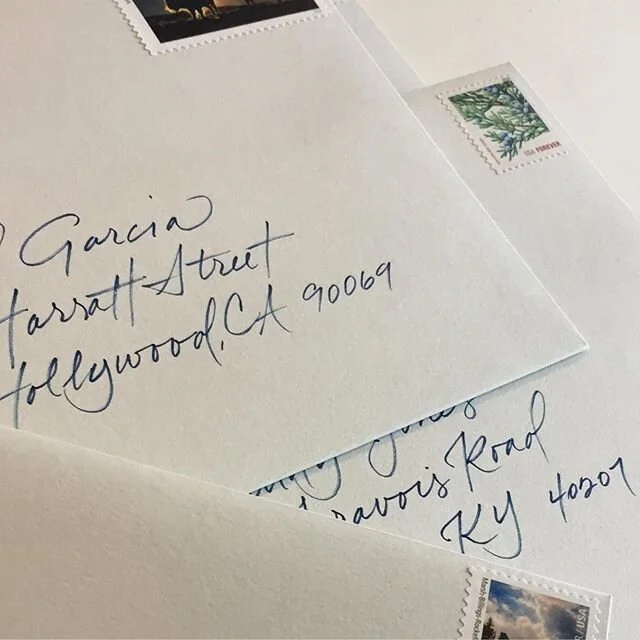 Garcia
Harratt Street
Hollywood, CA 90069
USA FOREVER
Road
KY 40207
USA